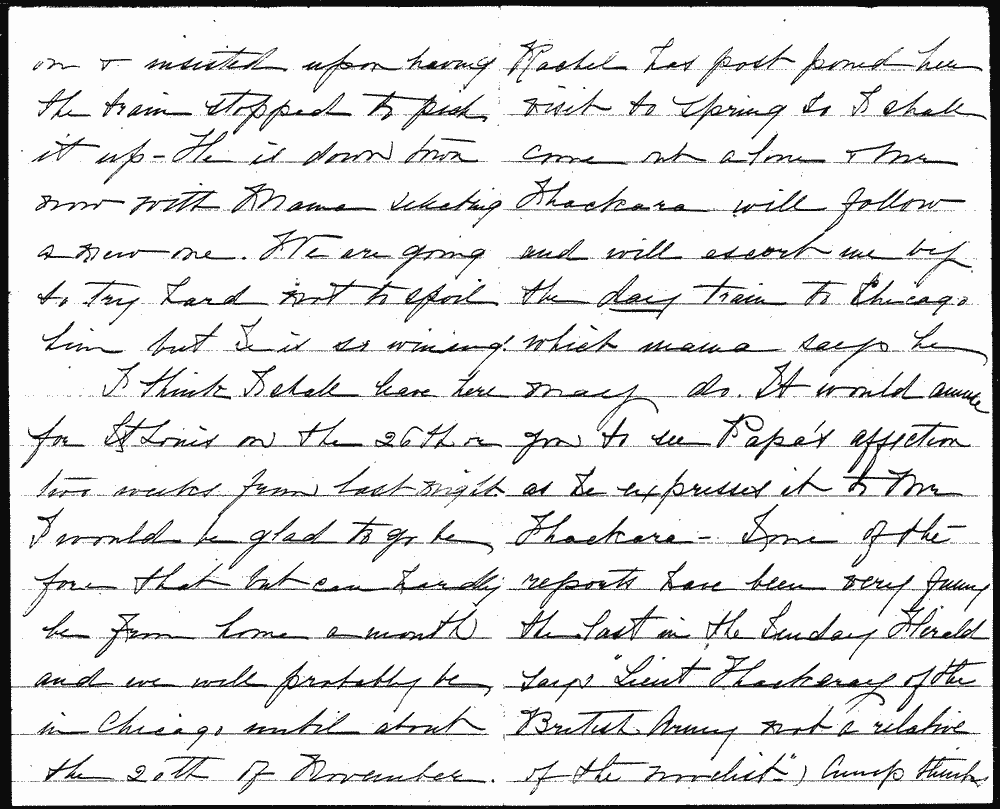 on & insisted upon having
the train stopped to pick
it up - He is down town
now with Mama selecting
a new one. We are going
to try hard not to spoil
him but he is so wining.
I think I shall leave here
for St Louis on the 26th or
two weeks from last night
I would be glad to go be
fore that but can hardly
be from home a month
and we will probably be
in Chicago until about
the 20th of November.
Rachel has post poned her
visit to Spring so I shall
come out alone & Mr
Thackara will follow
and will escort me by
the day train to Chicago
which mama says he
may do. It would amuse
you to see Papa's affection
as he expresses it to Mr
Thackara - Some of the
reports have been very funny
the last in the Sunday Herald
says "Lieut Thackeray of the
British Army not a relative
of the novelist") Cump thinks